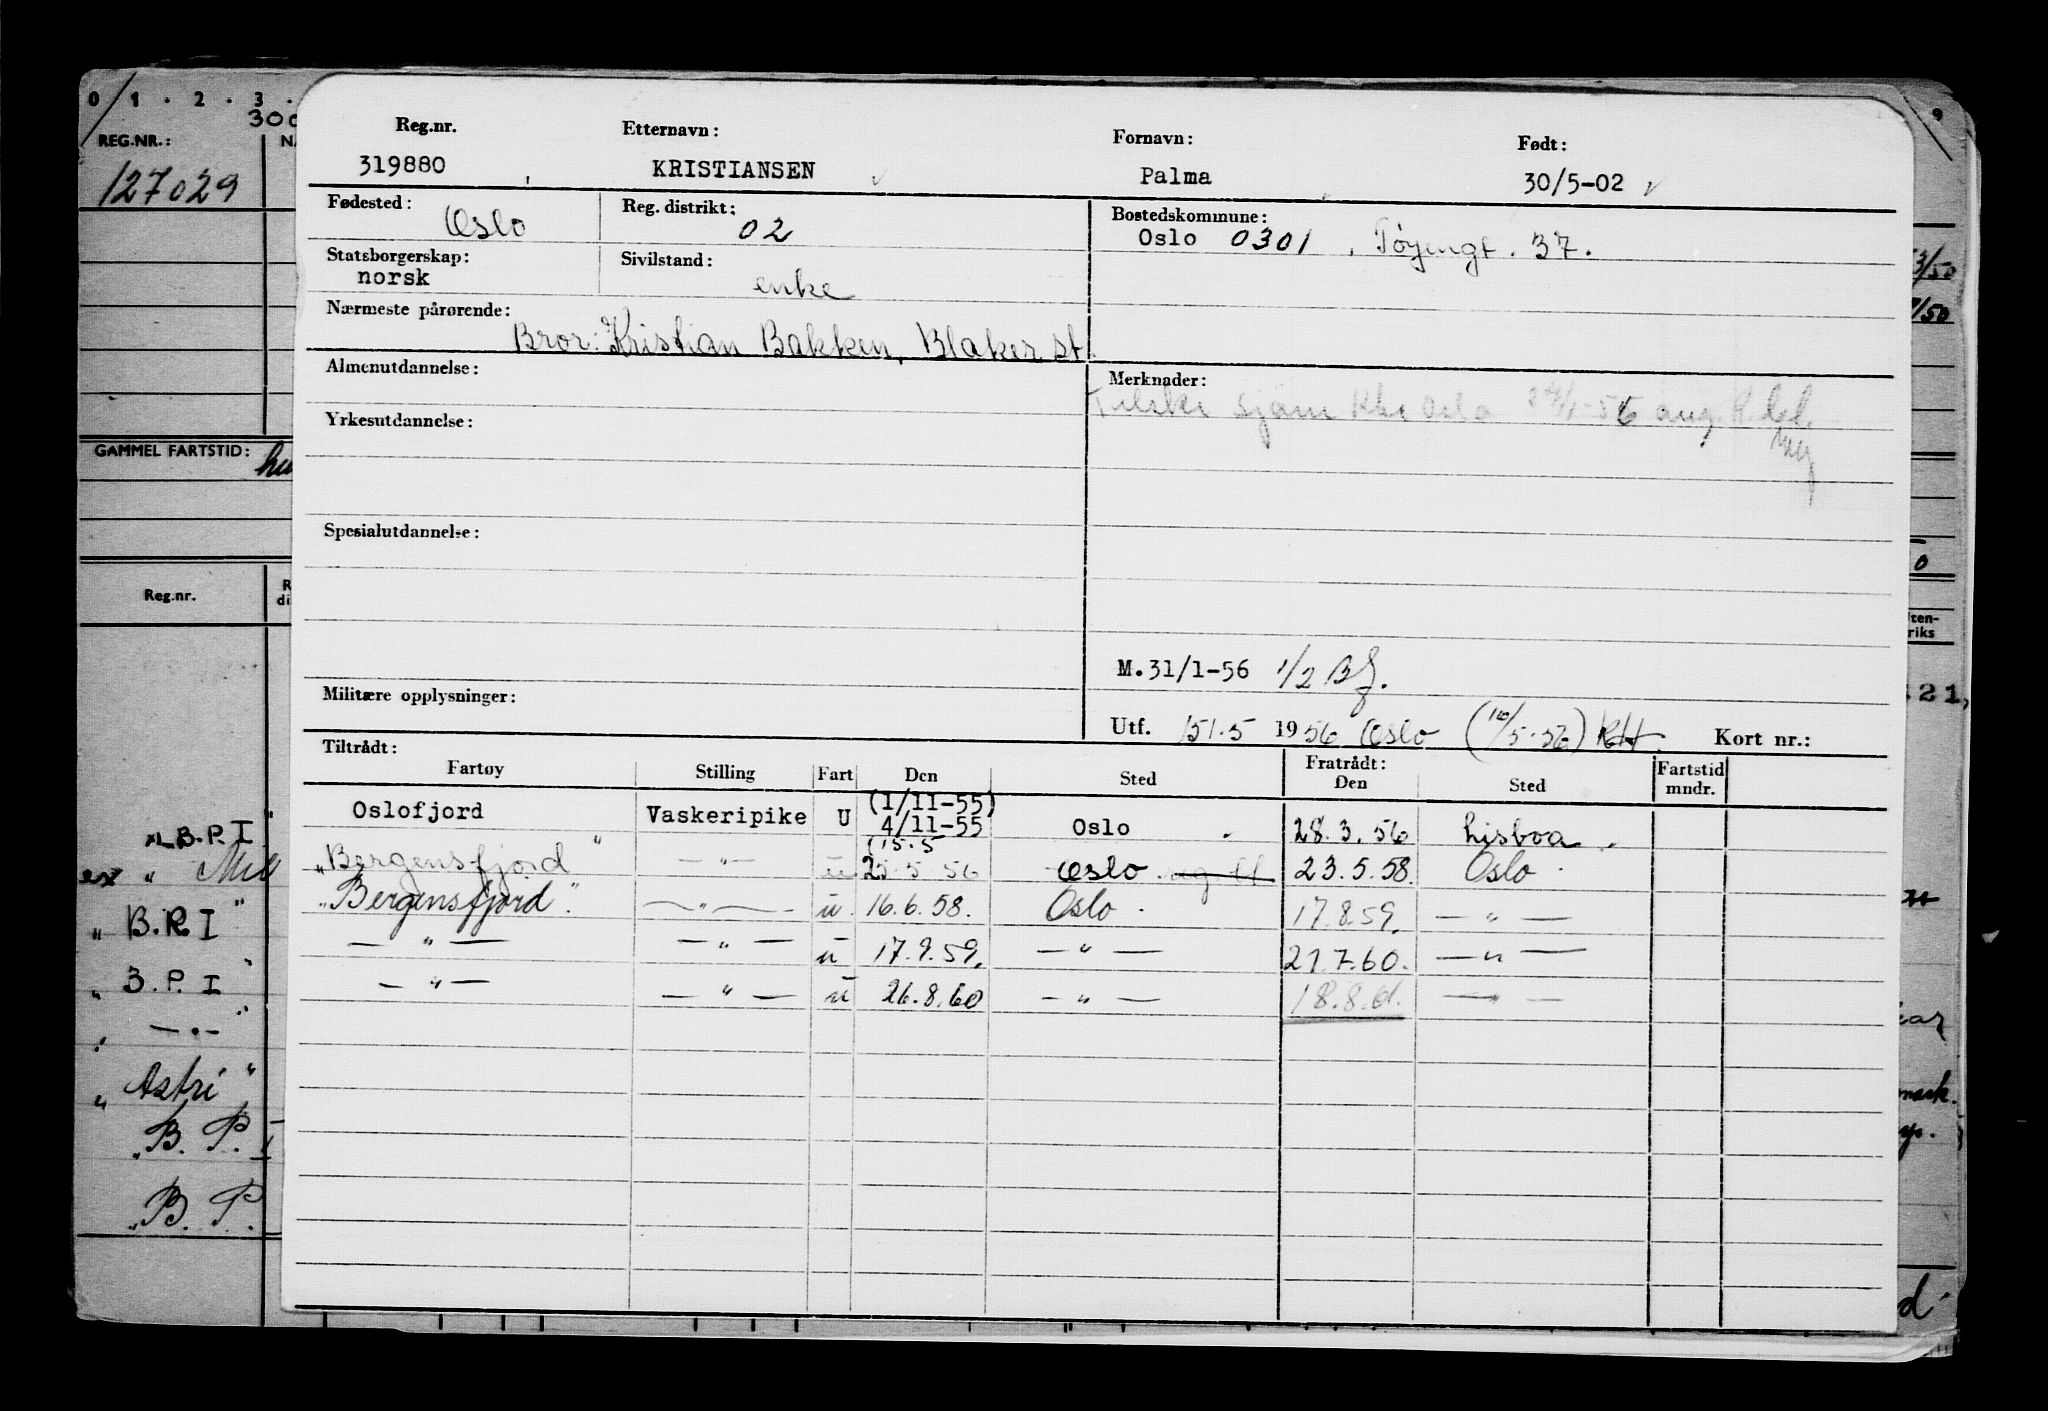 0 1 . 2 . 3 .
9
REG.NR.:
127029
GAMMEL FARTSTID:
Reg.nr.
Reg.nr. Etternavn: Fornavn: Født:
319880 KRISTIANSEN Palma 30/5-02
Fødested: Oslo Reg. distrikt: 02 Bostedskommune:
Oslo 0301, Tøyengt. 37.
Statsborgerskap: Sivilstand:
norsk enke
Nærmeste pårørende:
Bror: Kristian Bakken, Blaker st.
Almenutdannelse: Merknader:
sjøm Oslo
Yrkesutdannelse:
Spesialutdannelse:
M.31/1-56 1/2 BJ.
Militære opplysninger:
Utf. 1956 Oslo Kort nr.:
Tiltrådt: Fratrådt:
Fartøy Stilling Fart Den Sted Den Sted Fartstid mndr.
(1/11-55)
Oslofjord Vaskeripike U 4/11-55 Oslo 28.3.56 Lisboa
(15.5
"Bergensfjord" — " — u 5.56 Oslo 23.5.58. Oslo
"Bergensfjord". — " — u. 16.6.58. Oslo 17.8.59. — " —
— " — — " — u 17.9.59. — " — 21.7.60. — " —
— " — — " — u 26.8.60 — " — 18.8.61. — " —
B.P.I"
" B.P.I"
" B.P.I"
— " —
" Astri"
"B. P. I
"B. P.